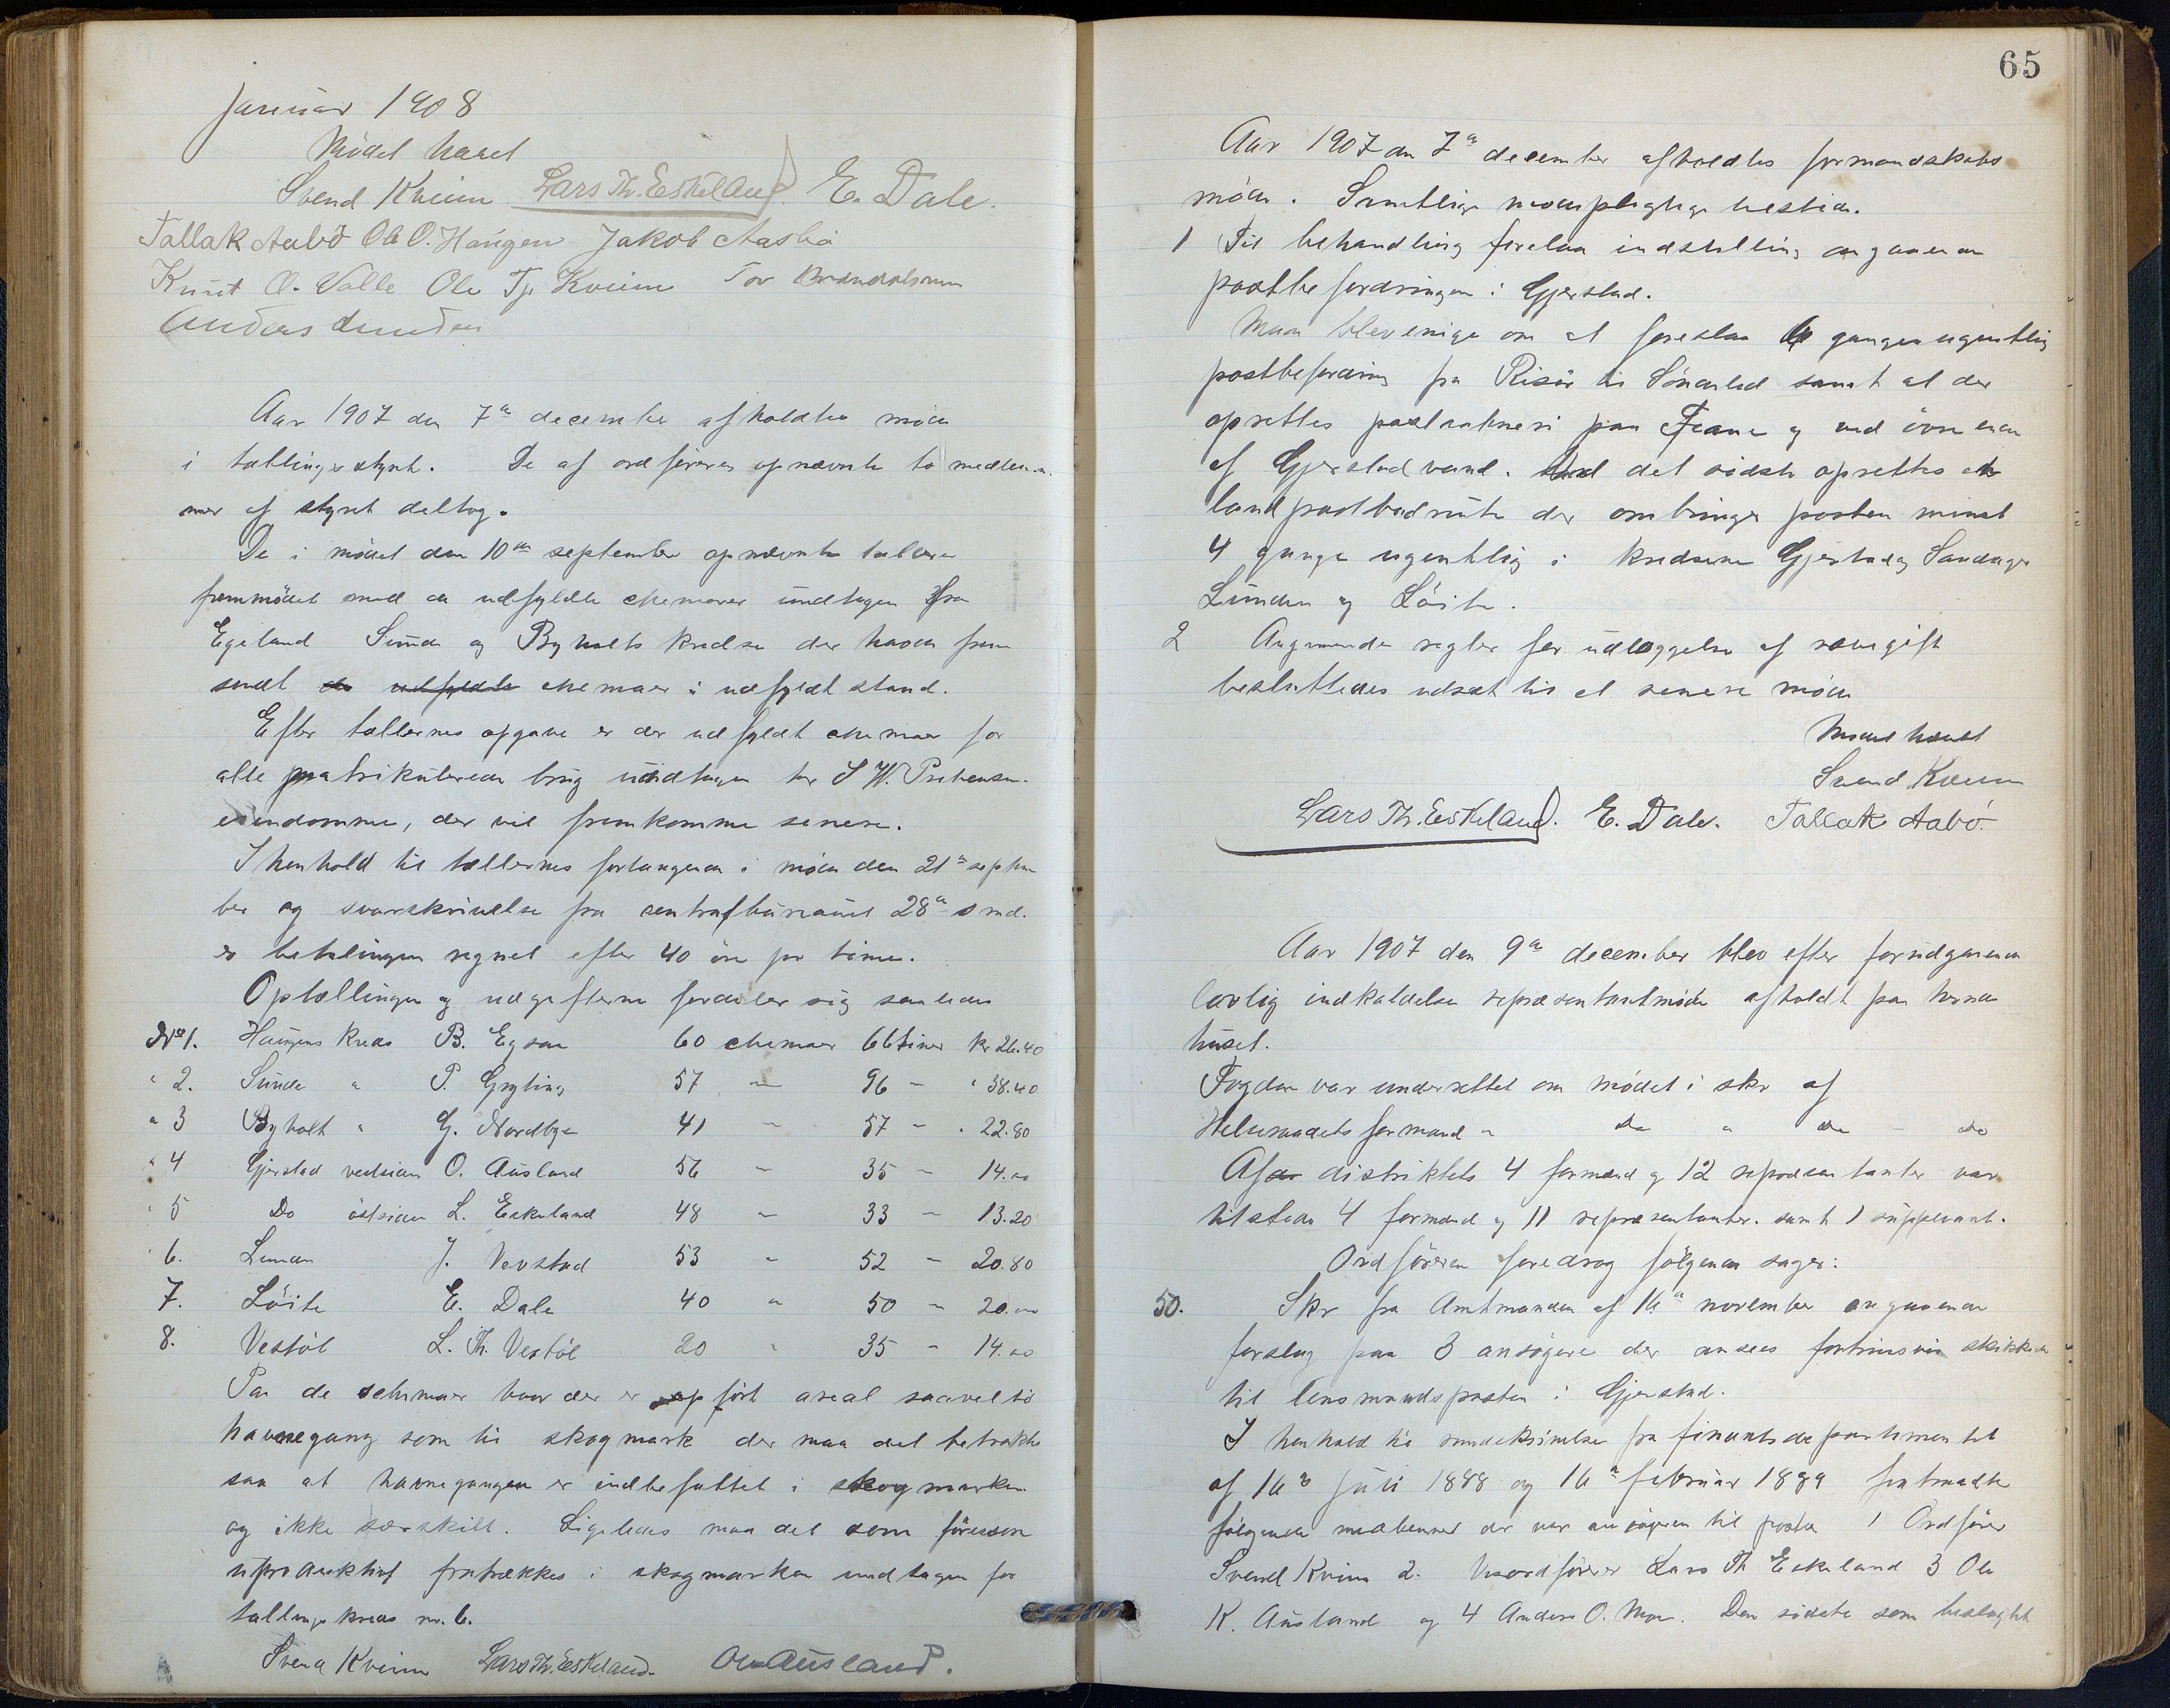 januar 1908
Mødet hævet
Svend Kveim Lars Th. Eskeland E. Dale.
Tallak Aabø Ole O. Haugen Jakob Aasbø
Knut O. Valle Ole Tj. Kveim Tov
Anders Lunden
Aar 1907 den 7de december afholdtes møde
i tællingsstyret. De af ordføreren opnævnte to medlem-
mer af styret deltog.
De i mødet den 10de september opnævnte tællere
fremmødet med de udfyldte skemaer undtagen fra
Egeland Sunde og Byholts kredse der havde frem
sendt de udfyldte skemaer i udfyldt stand.
Efter tællernes opgave er der udfyldt skemaer for
alle matrikulerede brug undtagen for S W. Prebensens
eiendomme, der vil fremkomme senere.
I henhold til tællernes forlangende i møde den 21de septem
ber og svarskrivelse fra sentralbureauet 28de s md.
er betalingen regnet efter 40 øre pr time.
Optællingen og udgifterne fordeler sig saaledes
No 1. Haugens kreds B. Egsaa 60 skemaer 66 timer kr 26.40
" 2. Sunde " P. Gryting 57 " 96 - " 38.40
" 3 Byholt " G. Nordbye 41 - 57 - " 22.80
" 4 Gjerstad vestsiden O. Ausland 56 - 35 - 14.00
" 5 Do østsiden L. Eskeland 48 - 33 - 13.20
" 6. Lunden J. Vevstad 53 - 52 - 20.80
7. Løite E. Dale 40 " 50 - 20.00
8. Vestøl L. Th. Vestøl 20 " 35 - 14.00
Paa de schemaer hvor der er opført areal saavel til
havnegang som til skogmark der maa det betraktes
saa at havnegangen er indbefattet i skogmarken
og ikke særskilt. Ligeledes maa det som føres som
uproduktivt fratrækkes i skogmarken undtagen for
tællingskreds nr. 6.
Svend Kveim Lars Th. Eskeland. Ole Ausland.
65
Aar 1907 den 7de december afholdtes formandskabs
møde. Samtlige mødepligtige tilstede.
1 Til behandling forelaa indstilling angaaende
postbefordringen i Gjerstad.
Man blev enige om at foreslaa 6 ganger ugentlig
postbefordring fra Risør til Søndeled samt at der
oprettes postaabneri paa Fiane og ved øvre enden
af Gjerstadvand. Ved det sidste oprettes en
landpostbudrute der ombringer posten minst
4 gange ugentlig i kredsene Gjerstad, Sandaker
Lunden og Løite.
2 Angaaende regler for udlæggelse af rævegift
besluttedes udsat til et senere møde
Mødet hævet
Svend Kveim
Lars Th. Eskeland. E. Dale. Tallak Aabø.
Aar 1907 den 9de december blev efter forudgaaende
lovlig indkaldelse repræsentantmøde afholdt paa herreds
huset.
Fogden var underrettet om mødet i skr af
Helseraadets formand " Do " Do - Do
Af distriktets 4 formænd og 12 repræsentanter var
tilstede 4 formænd og 11 repræsentanter. samt 1 suppleant.
Ordføreren foredrog følgende sager:
50. Skr fra Amtmanden af 16de november angaaende
forslag paa 3 ansøgere der ansees fortrinsvis skikkede
til lensmandsposten i Gjerstad.
I henhold til rundskrivelse fra finantsdepartementet
af 16de juli 1888 og 16de februar 1889 fratraadte
følgende medlemmer der var ansøgere til posten 1 Ordfører
Svend Kveim 2. Viseordfører Lars Th Eskeland 3 Ole
K. Ausland og 4 Anders O. Moe. Den sidste som beslægtet